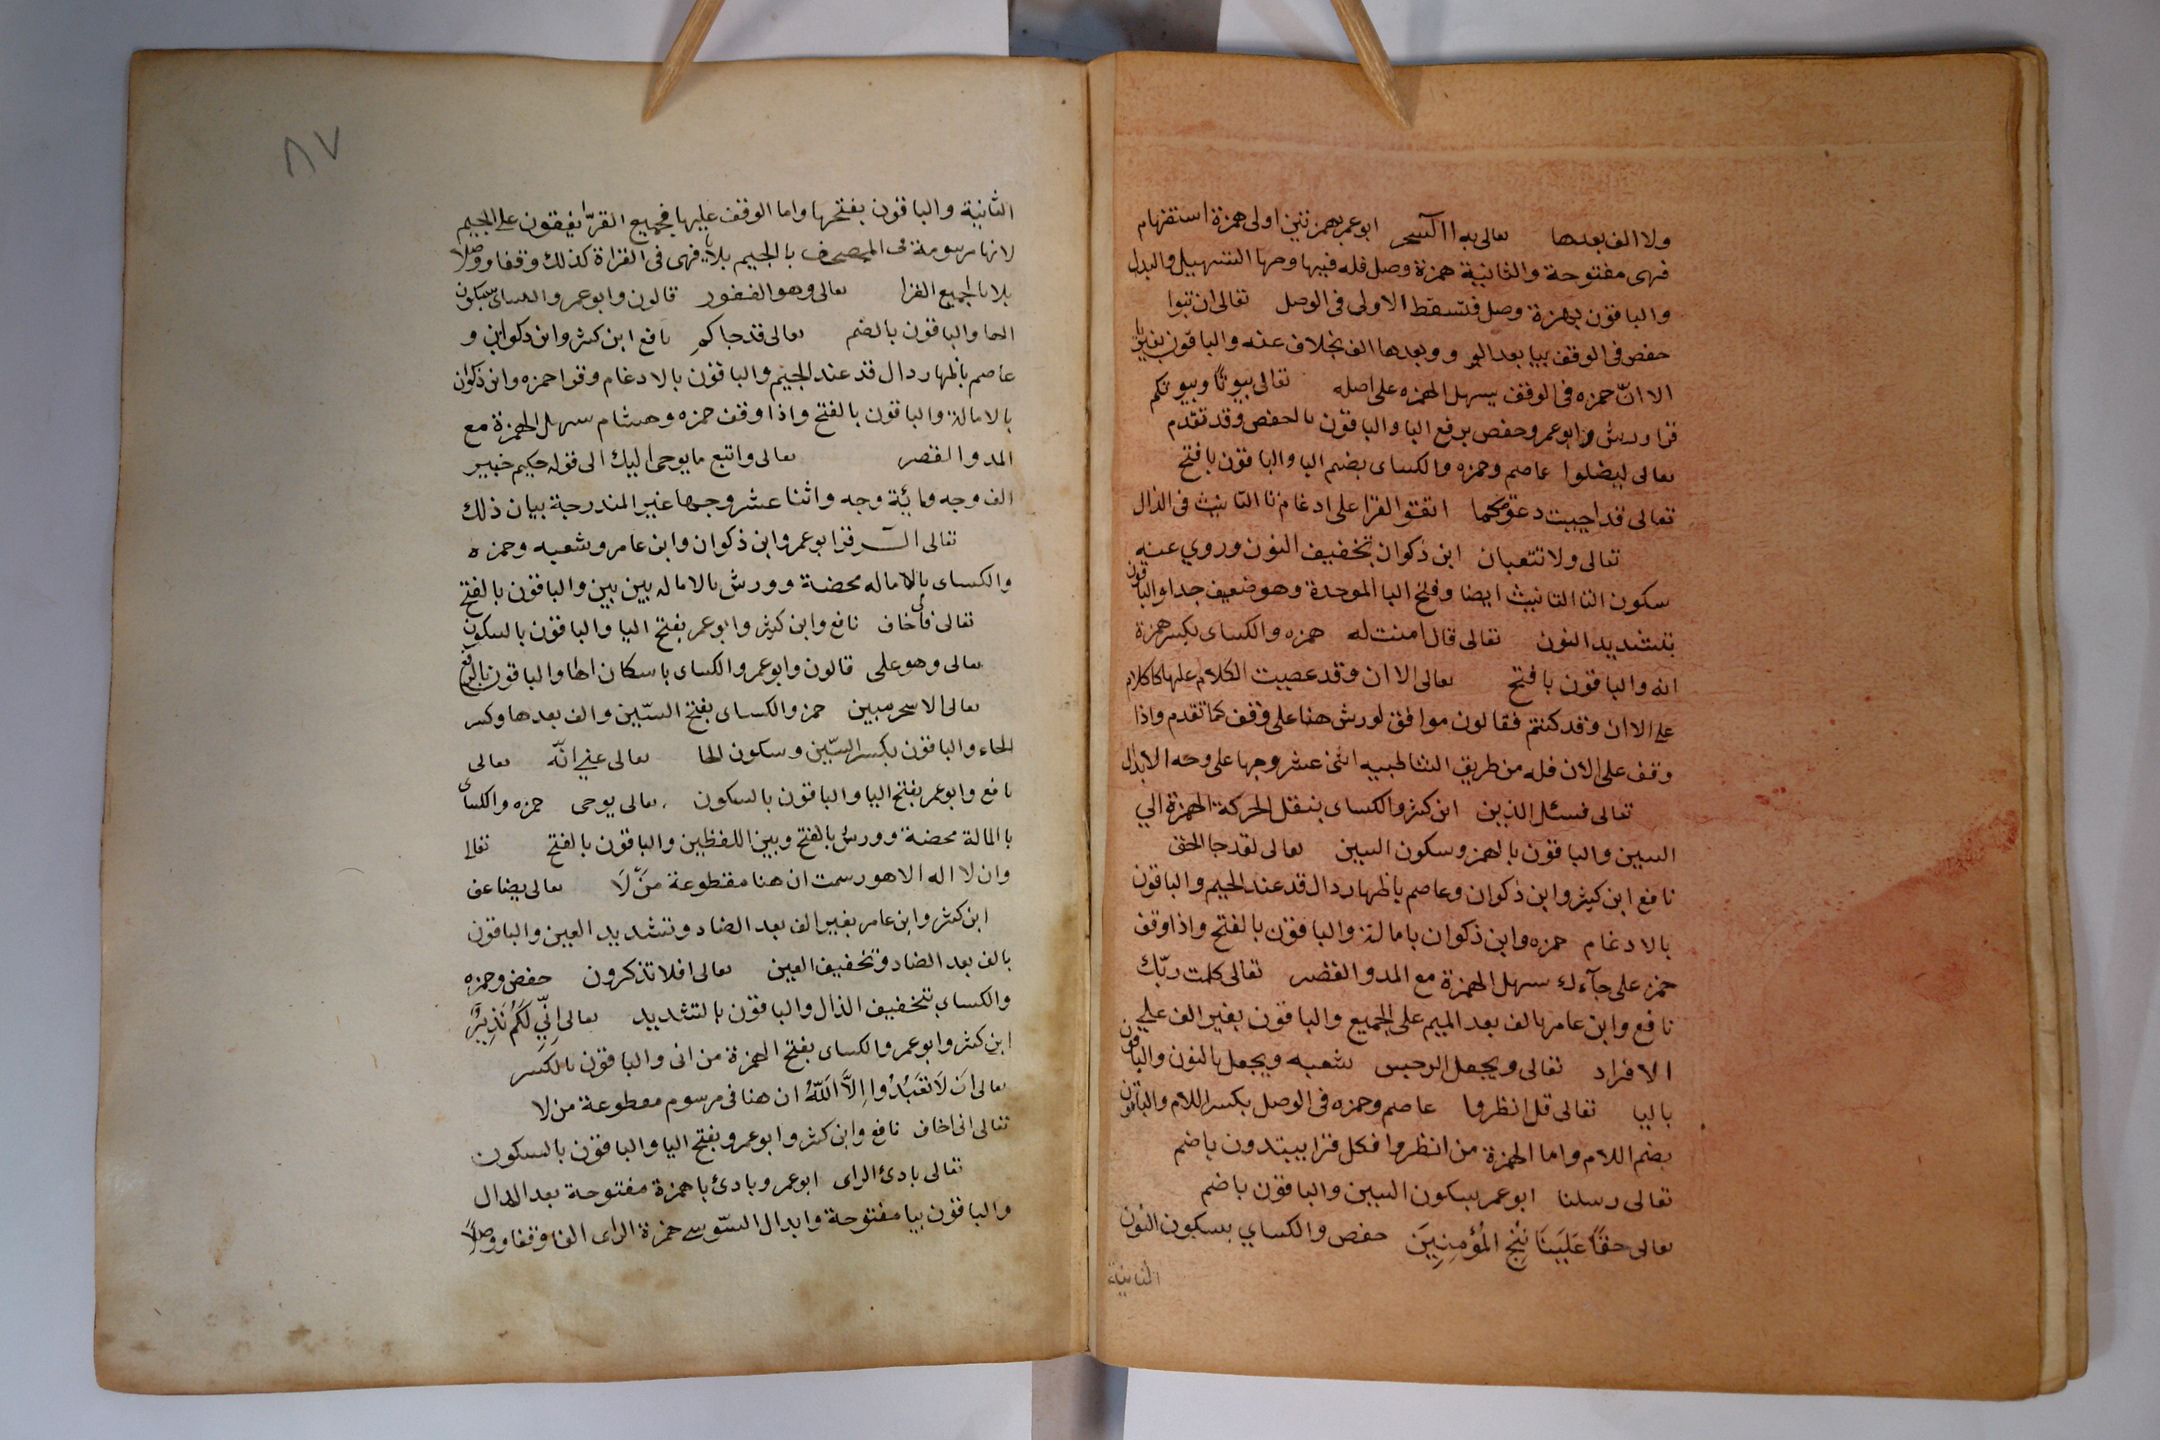 ولا الف بعدها تعالى به االسحر ابو عمر بهمزتين اولى همزة استفهام
فهى مفتوحة والثانية همزة وصل فله فيها وجها التسهيل والبدل
والباقون بهمزة وصل فتسقط الاولى فى الوصل تعالى ان تبوا
حفص فى الوقف بيا بعد الو وبعدها الف بخلاف عنه والباقون
الا ان حمزه فى الوقف يسهل الهمزه على اصله تعالى بيوتا وبيوتكم
قرا ورش وابو عمر وحفص برفع البا والباقون بالخفض وقد تقدم
تعالى ليضلوا عاصم وحمزه والكساى بضم اليا والباقون بافتح
تعالى قد اجيبت دعوتكما اتفتو القرا على ادغام تا التانيث فى الدال
تعالى ولا تتبعان ابن ذكوان بتخفيف النون وروي عنه
سكون التا التانيث ايضا وفتح البا الموحدة وهو ضعيف جدا والباقون
بتشديد النون تعالى قال امنت له حمزه والكساى بكسر همزة
انه والباقون بافتح تعالى الاان وقد عصيت الكلام عليها كاكلام
على الاان وقد كنتم فقالون موافق لورش هنا على وقف كما تقدم واذا
وقف على الان فله من طريق الشاطبيه اثنى عشر وجها على وجه الابدال
تعالى فسئل الذين ابن كثر والكساى بنقل الحركة الهمزة الي
السين والباقون بالهمز وسكون السين تعالى لقد جا الحق
نافع ابن كثر وابن ذكوان وعاصم باظهار دال قد عند الجيم والباقون
بالادغام حمزه وابن ذكوان بامالة والباقون بالفتح واذا وقف
حمز على جآءك سهل الهمزة مع المد والقصر تعالى كلمت ربك
نافع وابن عامر بالف بعد الميم على الجميع والباقون بغير الف علي
الافراد تعالى ويجعل الرجس شعبه ويجعل بالنون والباقون
باليا تعالى قل انظروا عاصم وحمزه فى الوصل بكسر اللام والباقون
بضم اللام واما الهمزة من انظروا فكل قرا يبتدون باضم
تعالى رسلنا ابو عمر بسكون السين والباقون باضم
تعالى حقًا عَلَينَا نُنْجِ المُؤمِنِينَ حفص والكساي بسكون النون
الثانية
٨٧
الثانية والباقون بفتحها واما الوقف عليها فجميع القرّا يقفون على الجيم
لانها مرسومة فى المصحف بالجيم بلا يا فهى فى القراة كذلك وقفا ووصلا
بلا يا لجميع القرا تعالى وهو الغفور قالون وابو عمر والكساى بسكون
الها والباقون بالضم تعالى قد جاكم نافع ابن كثر وابن ذكوان و
عاصم باظهار دال قد عند الجيم والباقون بالادغام وقرا حمزه وابن ذكوان
بالامالة والباقون بالفتح واذا وقف حمزه وهشام سهل الهمزة مع
المد والقصر تعالى واتبع ما يوحى اليك الى قوله حكيم خبير
الف وجه وماية وجه واثنا عشر وجها غير المندرجة بيان ذلك
تعالى الر قرا ابو عمر وابن ذكوان وابن عامر وشعبه وحمزه
والكساى بالاماله محضة وورش بالاماله بين بين والباقون بالفتح
تعالى فانى اخاف نافع وابن كثير وابو عمر بفتح اليا والباقون بالسكون
تعالى وهو على قالون وابو عمر والكساى باسكان الها والباقون بالرفع
تعالى الا سحر مبين حمز والكساى بفتح السّين والف بعدها وكسر
الحاء والباقون بكسر السّين وسكون الحا تعالى عني انّه تعالى
نافع وابو عمر بفتح اليا والباقون بالسكون تعالى يوحى حمزه والكساى
با المالة محضة وورش بالفتح وبين اللفظين والباقون بالفتح تعالى
وان لا اله الا هو رسمت ان هنا مقطوعة مَنْ لَا تعالى يضاعف
ابن كثر وابن عامر بغير الف بعد الضاد وتشديد العين والباقون
بالف بعد الضاد وتخفيف العين تعالى افلا تذكرون حفص وحمزه
والكساى بتخفيف الذال والباقون بالتشديد تعالى اِنِّي لَكُم نَذِيرٌ
ابن كثر وابو عمر والكساى بفتح الهمزة من انى والباقون بالكسر
تعالى اَن لَا تَعْبُدُوا اِلاَّ اللّٰهُ ان هنا فى مرسوم مقطوعة من لا
تعالى انى اخاف نافع وابن كثر وابو عمرو بفتح اليا والباقون بالسكون
تعالى بادئ الراى ابو عمر وبادئ با همزة مفتوحة بعد الدال
والباقون بيا مفتوحة وابدال السّوسے همزة الراى الفا وقفا ووصلًا